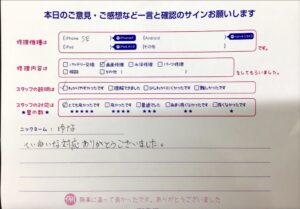 本日のご意見・ご感想など一言と確認のサインお願いします
修理機種は
iPhone SE
iPad
iPod
その他
修理内容は
バッテリー交換 画面修理 水没修理 パーツ修理
相談 その他
をしてもらいました。
スタッフの説明は
わかりやすかったです 理解できました 少しわかりにくかったです 難しかったです
スタッフの対応は
★星の数★
とても良かったです 良かったです 普通でした あまり良くなかったです 良くなかったです
★★★★★ ★★★★ ★★★ ★★ ★
ニックネーム:
ていねいな対応ありがとうございました。
無事に直って良かったです。ありがとうございました